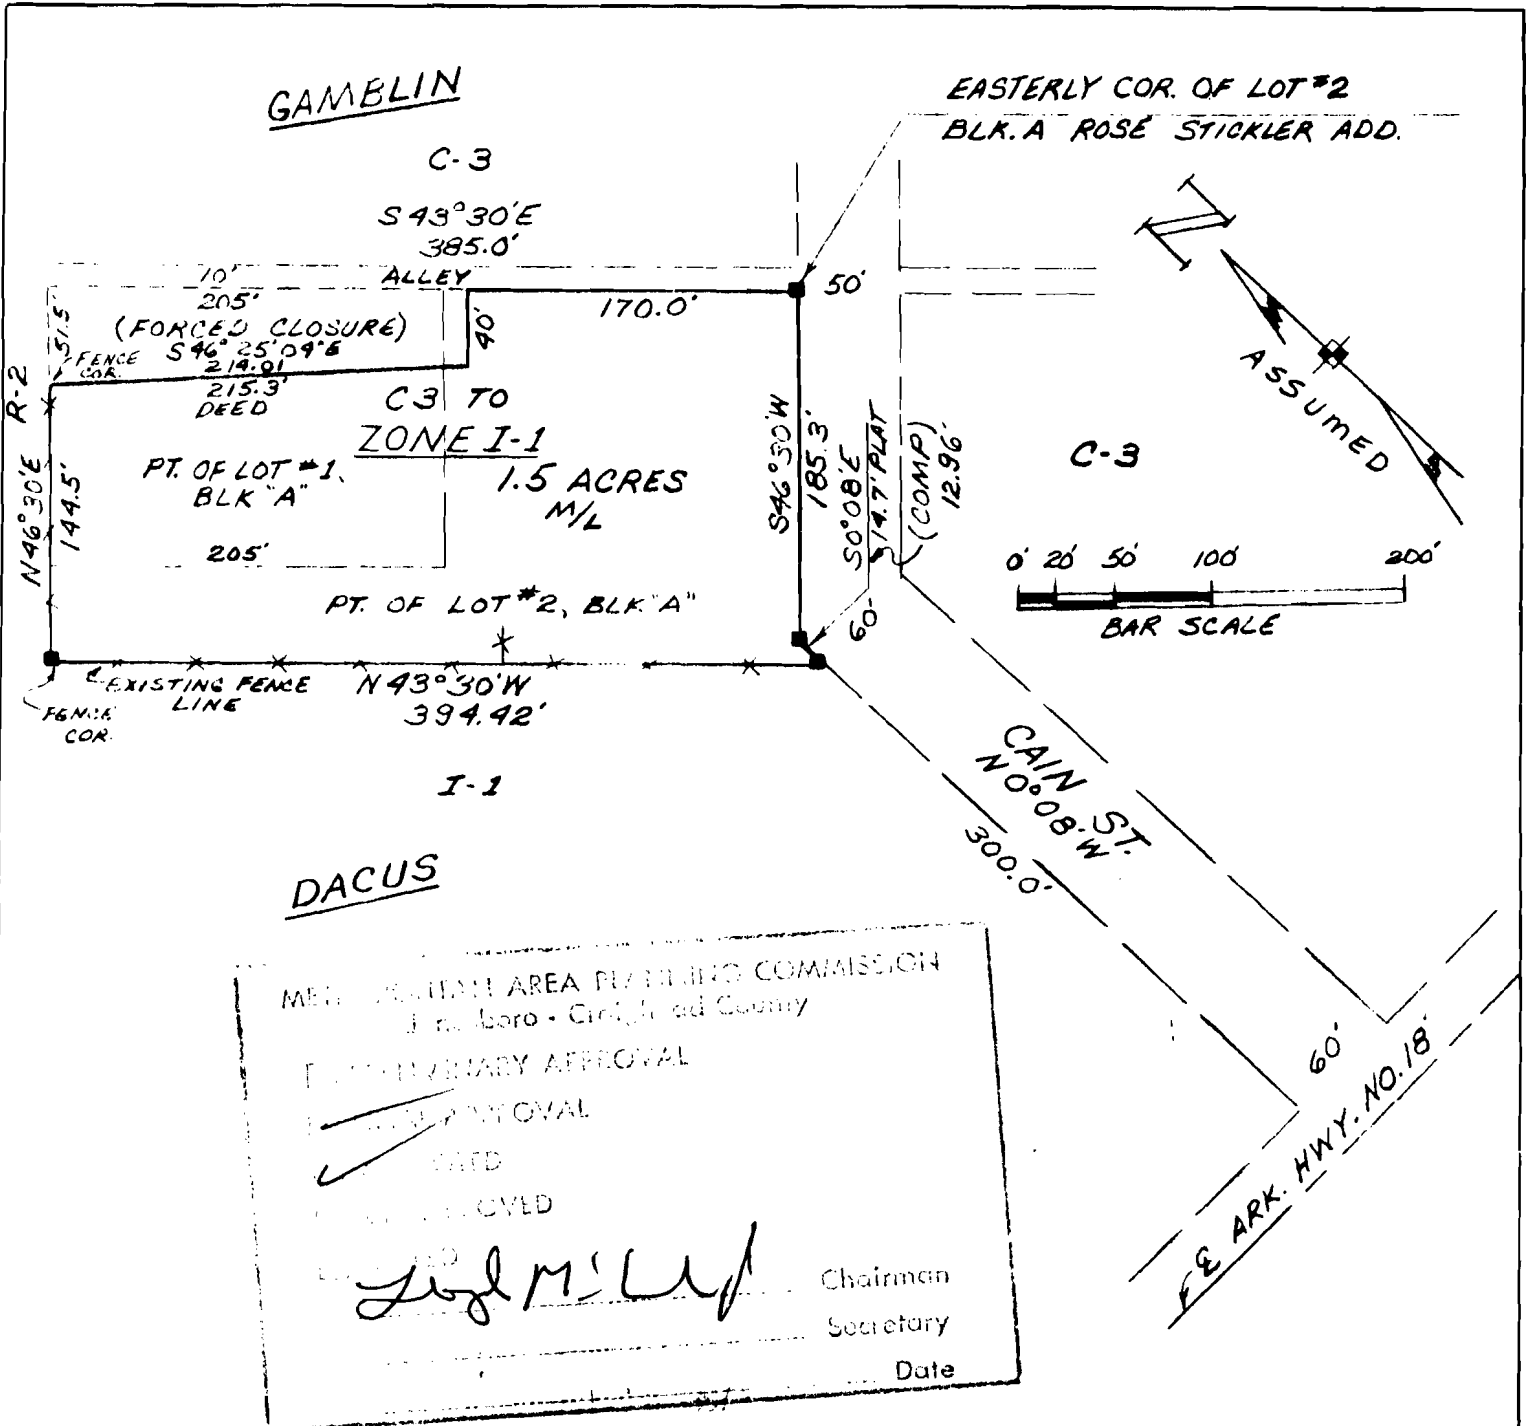 GAMBLIN
EASTERLY COR. OF LOT #2
BLK. A ROSE STICKLER ADD.
C-3
S 43°30'E
385.0'
10'
ALLEY
205'
(FORCED CLOSURE)
S 46° 25' 04" E
214.01
215.3'
DEED
51.5'
FENCE
COR.
40'
170.0'
50'
R-2
N46°30'E
144.5'
C3 TO
ZONE I-1
1.5 ACRES
M/L
PT. OF LOT #1,
BLK "A"
205'
PT. OF LOT #2, BLK "A"
S46°30'W
185.3'
S0°08'E
14.7' PLAT
(COMP)
12.96'
60'
C-3
ASSUMED
0' 20' 50' 100' 200'
BAR SCALE
EXISTING FENCE
LINE
FENCE
COR.
N 43°30'W
394.42'
I-1
CAIN ST.
N 0°08'W
300.0'
DACUS
60'
℄ ARK. HWY. NO. 18
AREA PLANNING COMMISSION
County
APPROVAL
Chairman
Secretary
Date